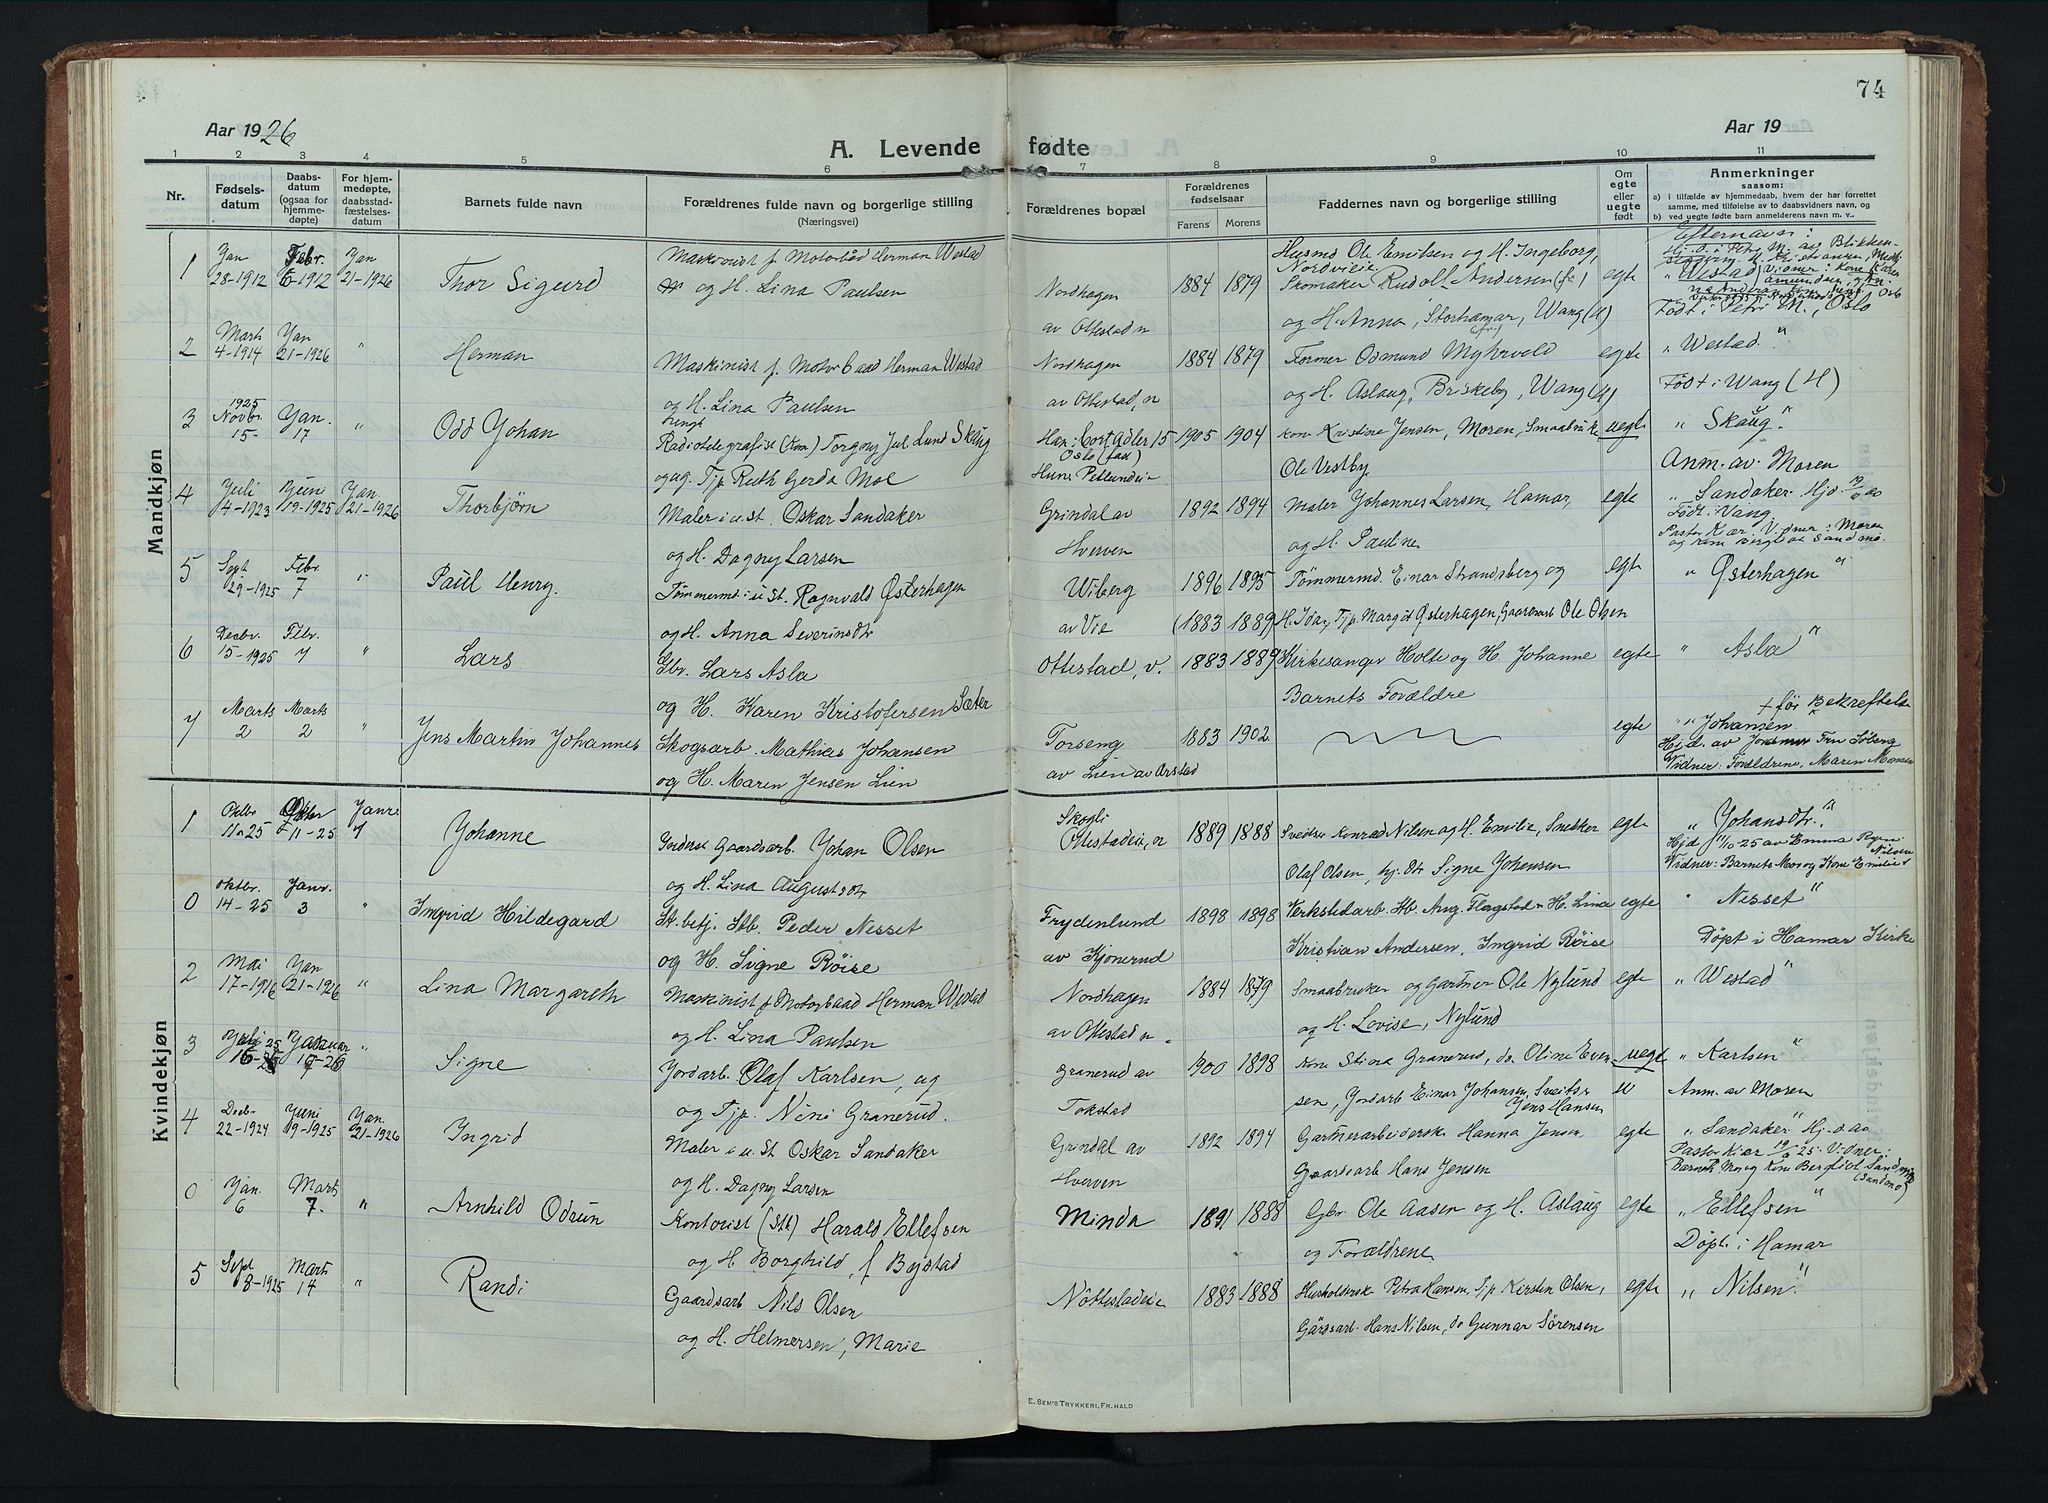 74
Aar 1926
Aar 19
A. Levende fødte
1 2 3 4 5 6 7 8 9 10 11
Nr.
Fødsels-
datum
Daabs-
datum
(ogsaa for
hjemme-
døpte)
For hjem-
medøpte,
daabsstad-
fæstelses-
datum
Barnets fulde navn
Forældrenes fulde navn og borgerlige stilling
(Næringsvei)
Forældrenes bopæl
Forældrenes
fødselsaar
Farens Morens
Faddernes navn og borgerlige stilling
Om
egte
eller
uegte
født
Anmerkninger
saasom:
a) i tilfælde av hjemmedaab, hvem der har forrettet
samme, med tilføielse av to daabsvidners navn, og
b) ved uegte fødte barn anmelderens navn m. v.
Mandkjøn
1 Jan 28-1912 Febr. 6-1912 Jan 21-1926 Thor Sigurd
Maskinist p. Motorbåd Herman Westad
og H. Lina Paulsen
Nordhagen
av Ottestad n
1884 1879
Husmd Ole Emilsen og H. Ingeborg,
Nordvieie
Skomaker Rudolf Andersen
og H. Anna, Storhamar, Wang (H)
egte
Efternavn:
"Westad
Født i Petri M., Oslo
2 Mart 4-1914 Jan 21-1926 " Herman
Maskinist p. Motorbaad Herman Westad
og H. Lina Paulsen
Nordhagen
av Ottestad, n
1884 1879
Former Osmund Myhrvold
og H. Aslaug, Briskeby, Wang (H)
egte
" Westad "
Født i Wang (H)
3 1925 Novbr. 15- Jan. 17 " Odd Johan
Ungk
Radiotelegrafist Torgny Jul. Lund Skaug
og ug. Tjp Ruth Gerda Moe
Han: Cort Adler 15
Oslo
Hun: Petlundeie
1905 1904
Kone Kristine Jensen, Moren, Smaabruker
Ole Vestby
uegte
" Skaug."
Anm. av Moren
4 Juli 4-1923 Juni 19-1925 Jan. 21-1926 Thorbjörn
Maler i u. st. Oskar Sandaker
og H. Dagny Larsen
Grindal av
Hverven
1892 1894
Maler Johannes Larsen, Hamar,
og H. Pauline
egte
" Sandaker. Hjd.
Født i Vang.
Pastor Kiær. Vidner: Moren
5 Sept 29-1925 Febr. 7 " Paul Henry.
Tømmermd i u. st. Ragnvald Østerhagen
og H. Anna Severinsdtr
Wiberg
av Vie
1896 1895
(1883 1889)
Tømmermd. Einar Strandsberg og
H. Ida, Tjp. Margit Østerhagen, Gaardsarb Ole Olsen
egte
" Østerhagen "
6 Decbr. 15-1925 Febr. 7 " Lars
Gbr. Lars Asla
og H. Karen Kristofersen Sæter
Ottestad, v.
1883 1889
Kirkesanger Holte og H. Johanne
Barnets Forældre
egte
" Asla "
7 Marts 2 Marts 2 " Jens Martin Johannes
Skogsarb. Mathias Johansen
og H. Maren Jensen Lien
Torseng
av Lien av Arstad
1883 1902
egte
+ før Bekreftelse
" Johansen "
Hjd. av Jordmor Fru Søberg
Vidner: Forældrene, Maren Monsen
Kvindekjøn
1 Oktbr 11-25 Oktbr 11-25 Janr. 7 Johanne
Inderst Gaardsarb. Johan Olsen
og H. Lina Augustsdtr
Skopli
Ottestadeie, n
1889 1888
Sveitser Konrad Nilsen og H. Emilie, Snekker
Olaf Olsen, Signe Johansen
egte
" Johansdtr."
Hjd 11/10-25 av Emma
Vidner: Barnets Mor og Kone Emilie Nilsen
0 Oktbr. 14-25 Janr. 3 " Ingrid Hildegard
St. betj. Stb. Peder Nesset
og H. Signe Röise
Frydenlund
av Kjonerud
1898 1898
Verkstedarb. Stb. Aug. Flagstad H. Lina
Kristian Andersen, Ingrid Röise
egte
" Nesset "
Döpt i Hamar Kirke
2 Mai 17-1916 Jan 21-1926 " Lina Margareth
Maskinist p. Motorbaad Herman Westad
og H. Lina Paulsen
Nordhagen
av Ottestad n.
1884 1879
Smaabruker og Gartner Ole Nylund
og H. Lovise, Nylund
egte
" Westad "
3 Januar 17-26 " Signe
Jordarb. Olaf Karlsen, og
og Tjp. Nini Granerud.
Granerud av
Tokstad
1900 1898
Kone Stina Granerud, do. Oline Even-
sen, Jordarb Einar Johansen, Sveitser
Jens Hansen
uegte
" Karlsen "
Anm. av Moren
4 Decbr 22-1924 Juni 19-1925 Jan. 21-1926 Ingrid
Maler i u. st Oskar Sandaker
og H. Dagny Larsen
Grindal av
Hverven
1892 1894
Gartnerarbeiderske Hanna Jensen
Gaardsarb Hans Jensen
egte
" Sandaker." Hj. d. av
Pastor Kiær 19/6 25. Vidner:
0 Jan. 6 Mart 7. " Arnhild Odrun
Kontorist (Stb) Harald Ellefsen
og H Borghild, f Bystad
Minda
1891 1888
Gbr. Ole Aasen og H. Aslaug
og Forældrene
egte
" Ellefsen "
Döpt i Hamar
5 Sept 8-1925 Marts 14 " Randi
Gaardsarb Nils Olsen
og H. Helmersen, Marie
Nöttestadeie
1883 1888
Husholderske Petra Hansen, Tjp Kirsten Olsen,
Gårdsarb. Hans Nilsen, do Gunnar Sörensen
egte
" Nilsen."
E. SEM'S TRYKKERI, FR. HALD